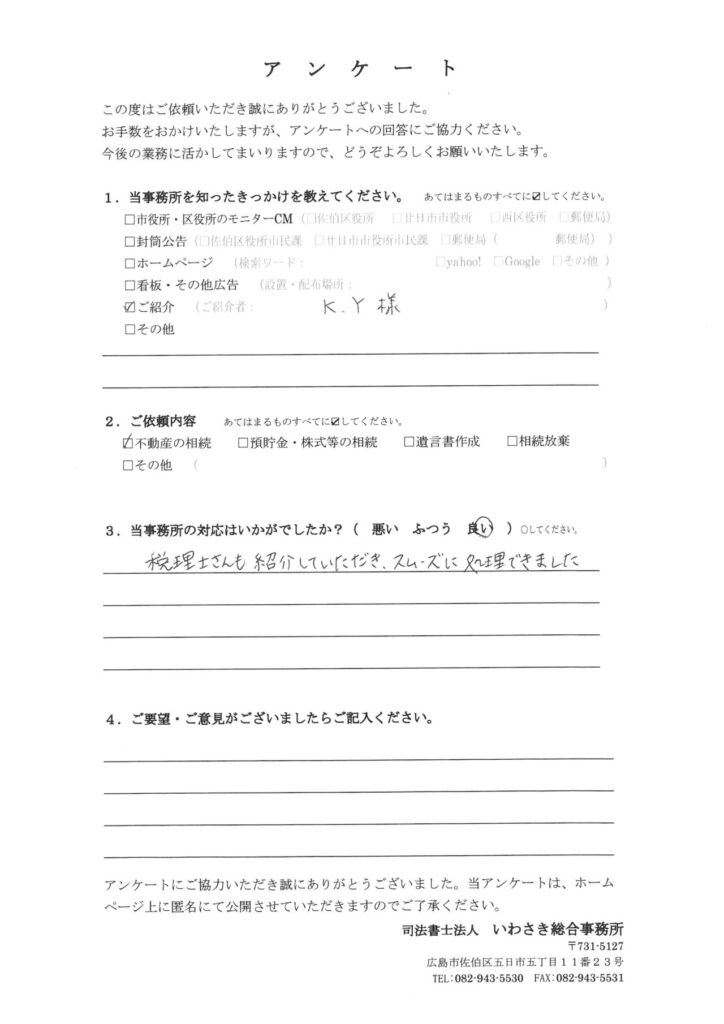 アンケート
この度はご依頼いただき誠にありがとうございました。
お手数をおかけいたしますが、アンケートへの回答にご協力ください。
今後の業務に活かしてまいりますので、どうぞよろしくお願いいたします。
1．当事務所を知ったきっかけを教えてください。 あてはまるものすべてに☑してください。
□市役所・区役所のモニターCM（□佐伯区役所 □廿日市市役所 □西区役所 □郵便局）
□封筒公告（□佐伯区役所市民課 □廿日市市役所市民課 □郵便局（ 郵便局））
□ホームページ （検索ワード： □yahoo! □Google □その他 ）
□看板・その他広告 （設置・配布場所： ）
☑ご紹介 （ご紹介者： K.Y 様 ）
□その他
2．ご依頼内容 あてはまるものすべてに☑してください。
☑不動産の相続 □預貯金・株式等の相続 □遺言書作成 □相続放棄
□その他 （ ）
3．当事務所の対応はいかがでしたか？（ 悪い ふつう 良い ）○してください。
税理士さんも紹介していただき、スムーズに処理できました
4．ご要望・ご意見がございましたらご記入ください。
アンケートにご協力いただき誠にありがとうございました。当アンケートは、ホーム
ページ上に匿名にて公開させていただきますのでご了承ください。
司法書士法人 いわさき総合事務所
〒731-5127
広島市佐伯区五日市五丁目１１番２３号
TEL:082-943-5530 FAX:082-943-5531